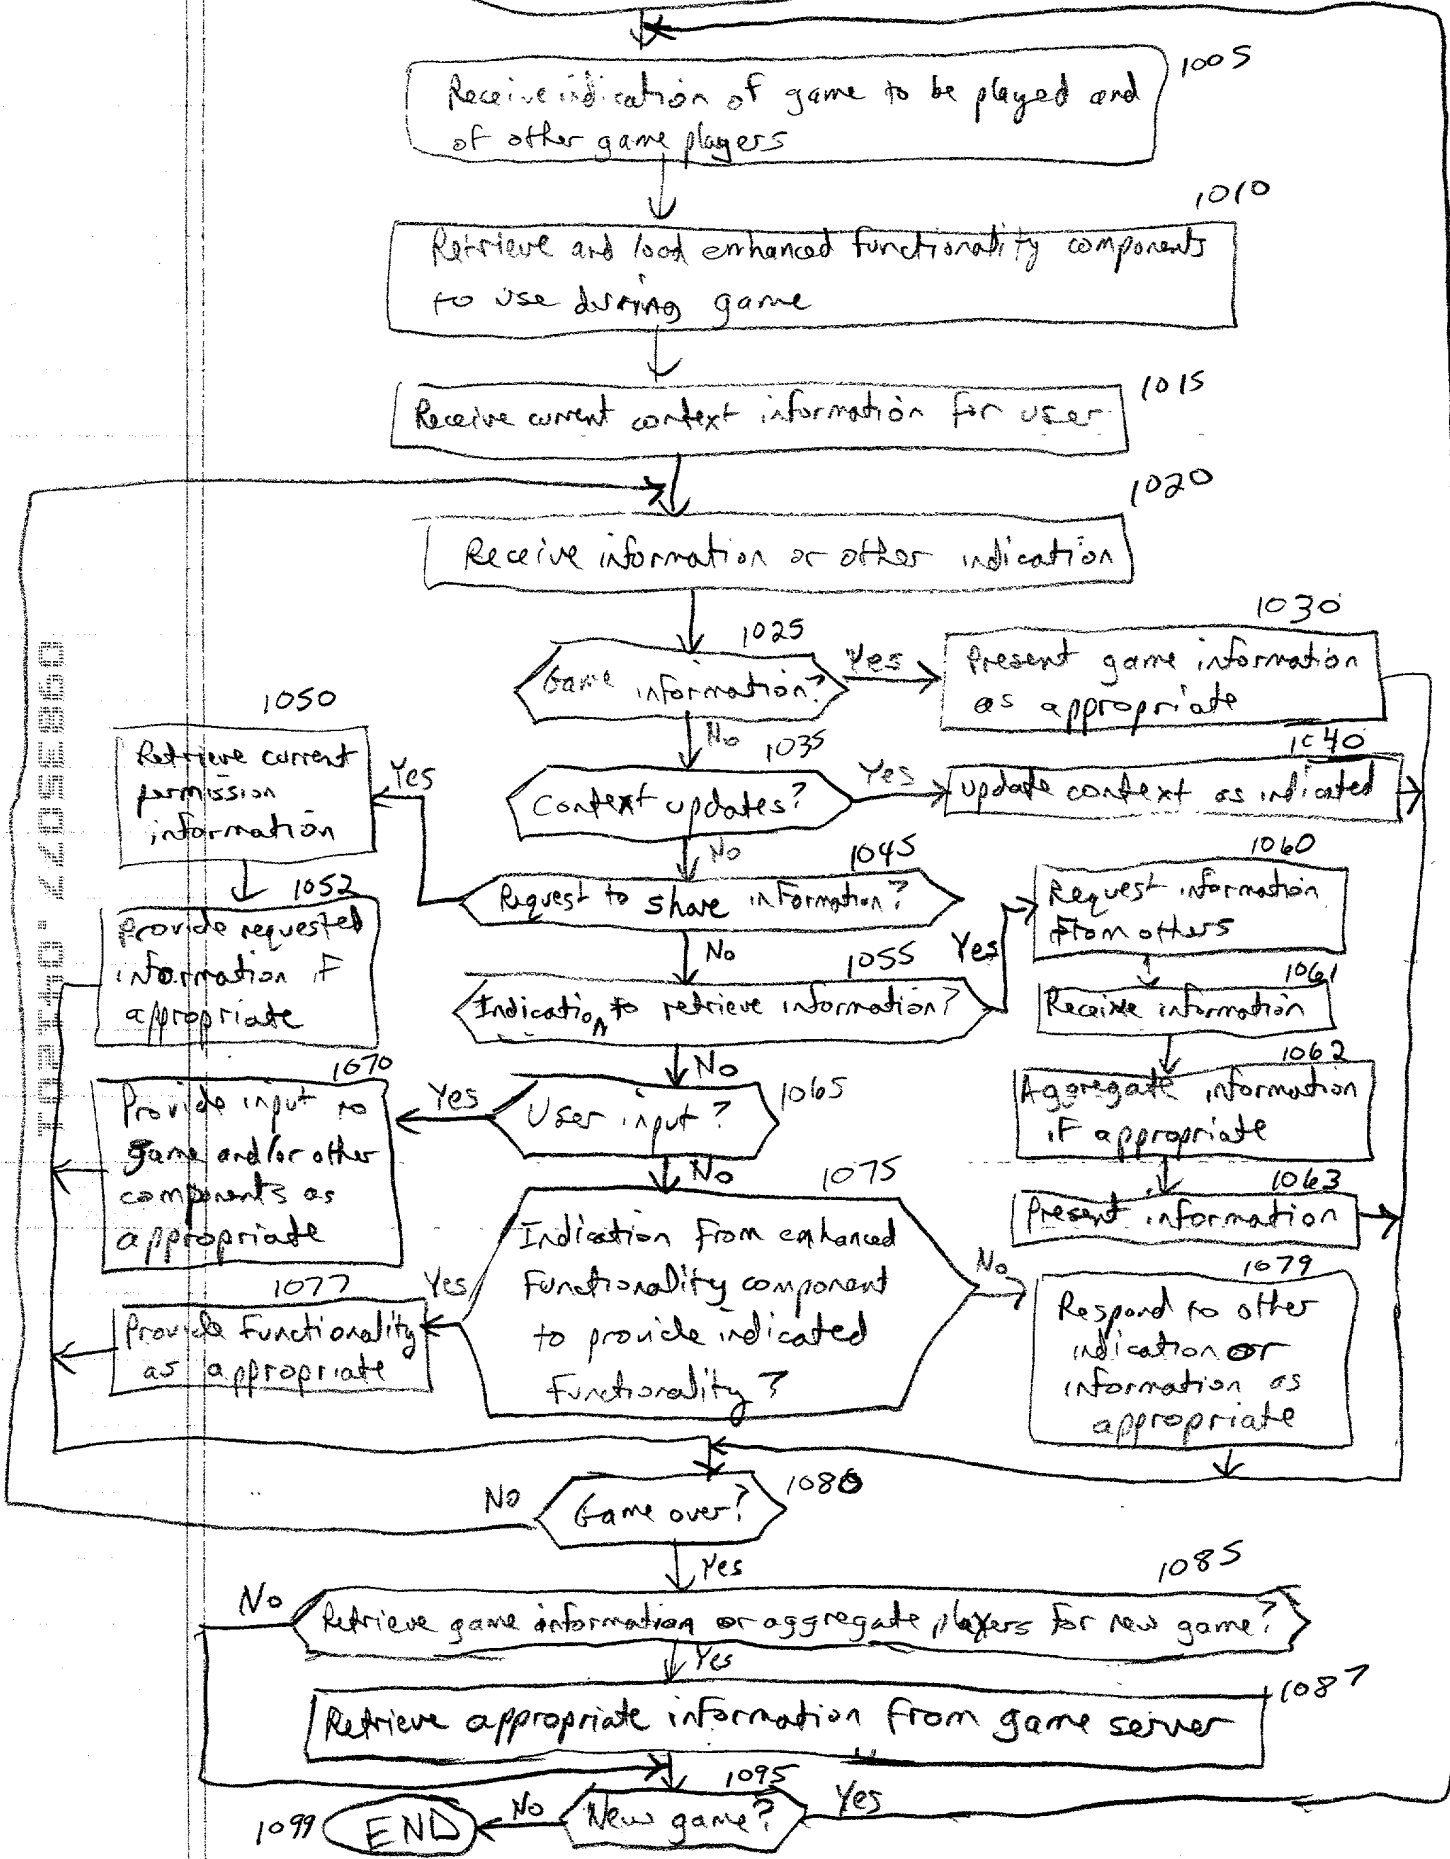 1005
Receive indication of game to be played and
of other game players
1010
Retrieve and load enhanced functionality components
to use during game
1015
Receive current context information for user
1020
Receive information or other indication
1025
Game information?
Yes
1030
Present game information
as appropriate
No
1035
Context updates?
Yes
1040
update context as indicated
No
1045
Request to share information?
Yes
1050
Retrieve current
permission
information
1052
Provide requested
information if
appropriate
No
1055
Indication to retrieve information?
Yes
1060
Request information
from others
1061
Receive information
1062
Aggregate information
if appropriate
1063
Present information
No
1065
User input?
Yes
1070
Provide input to
game and/or other
components as
appropriate
No
1075
Indication from enhanced
functionality component
to provide indicated
functionality?
Yes
1077
Provide functionality
as appropriate
No
1079
Respond to other
indication or
information as
appropriate
1080
Game over?
No
Yes
1085
Retrieve game information or aggregate players for new game?
No
Yes
1087
Retrieve appropriate information from game server
1095
New game?
Yes
No
1099
END